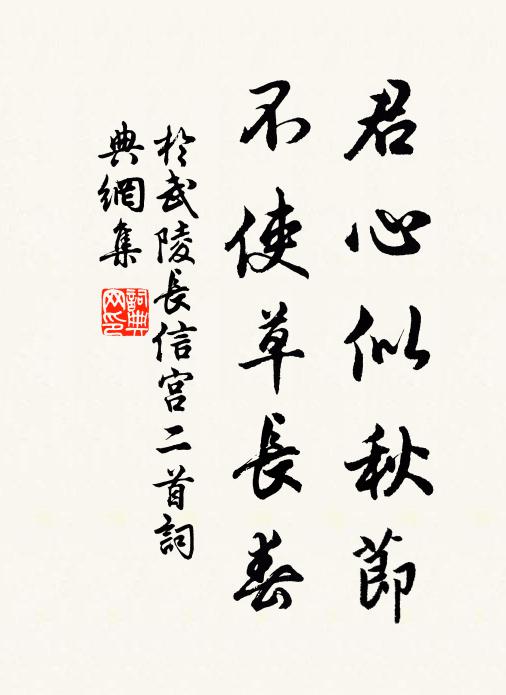 君心似秋節
不使草長春
於武陵長信宮二首詞
典網集
詞典網印